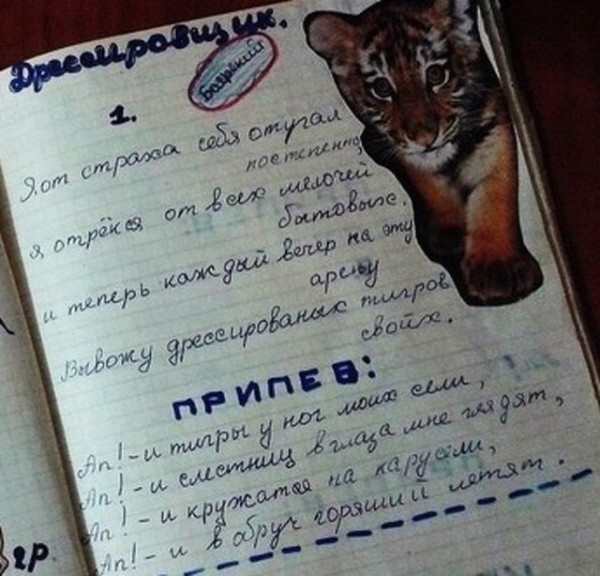 Дрессировщик.
Боярский
1.
Я от страха себя отугал
постепенно,
я отрёкся от всех мелочей
бытовых.
и теперь каждый вечер на эту
арену
Вывожу дрессированых тигров
своих.
ПРИПЕВ:
Ап! - и тигры у ног моих сели,
Ап! - и с лестниц в глаза мне глядят,
Ап! - и кружатся на карусели,
Ап! - и в обруч горящий летят.
гр.